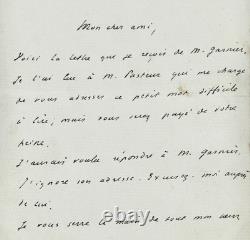 Mon cher ami,
Voici la lettre que je reçois de M. Garnier.
Je l'ai lue à M. Pasteur qui me charge
de vous adresser ce petit mot difficile
à lire, mais vous serez payé de votre
peine.
J'aurais voulu répondre à M. Garnier,
J'ignore son adresse. Excusez-moi auprès
de lui.
Je vous serre la main de tout mon cœur